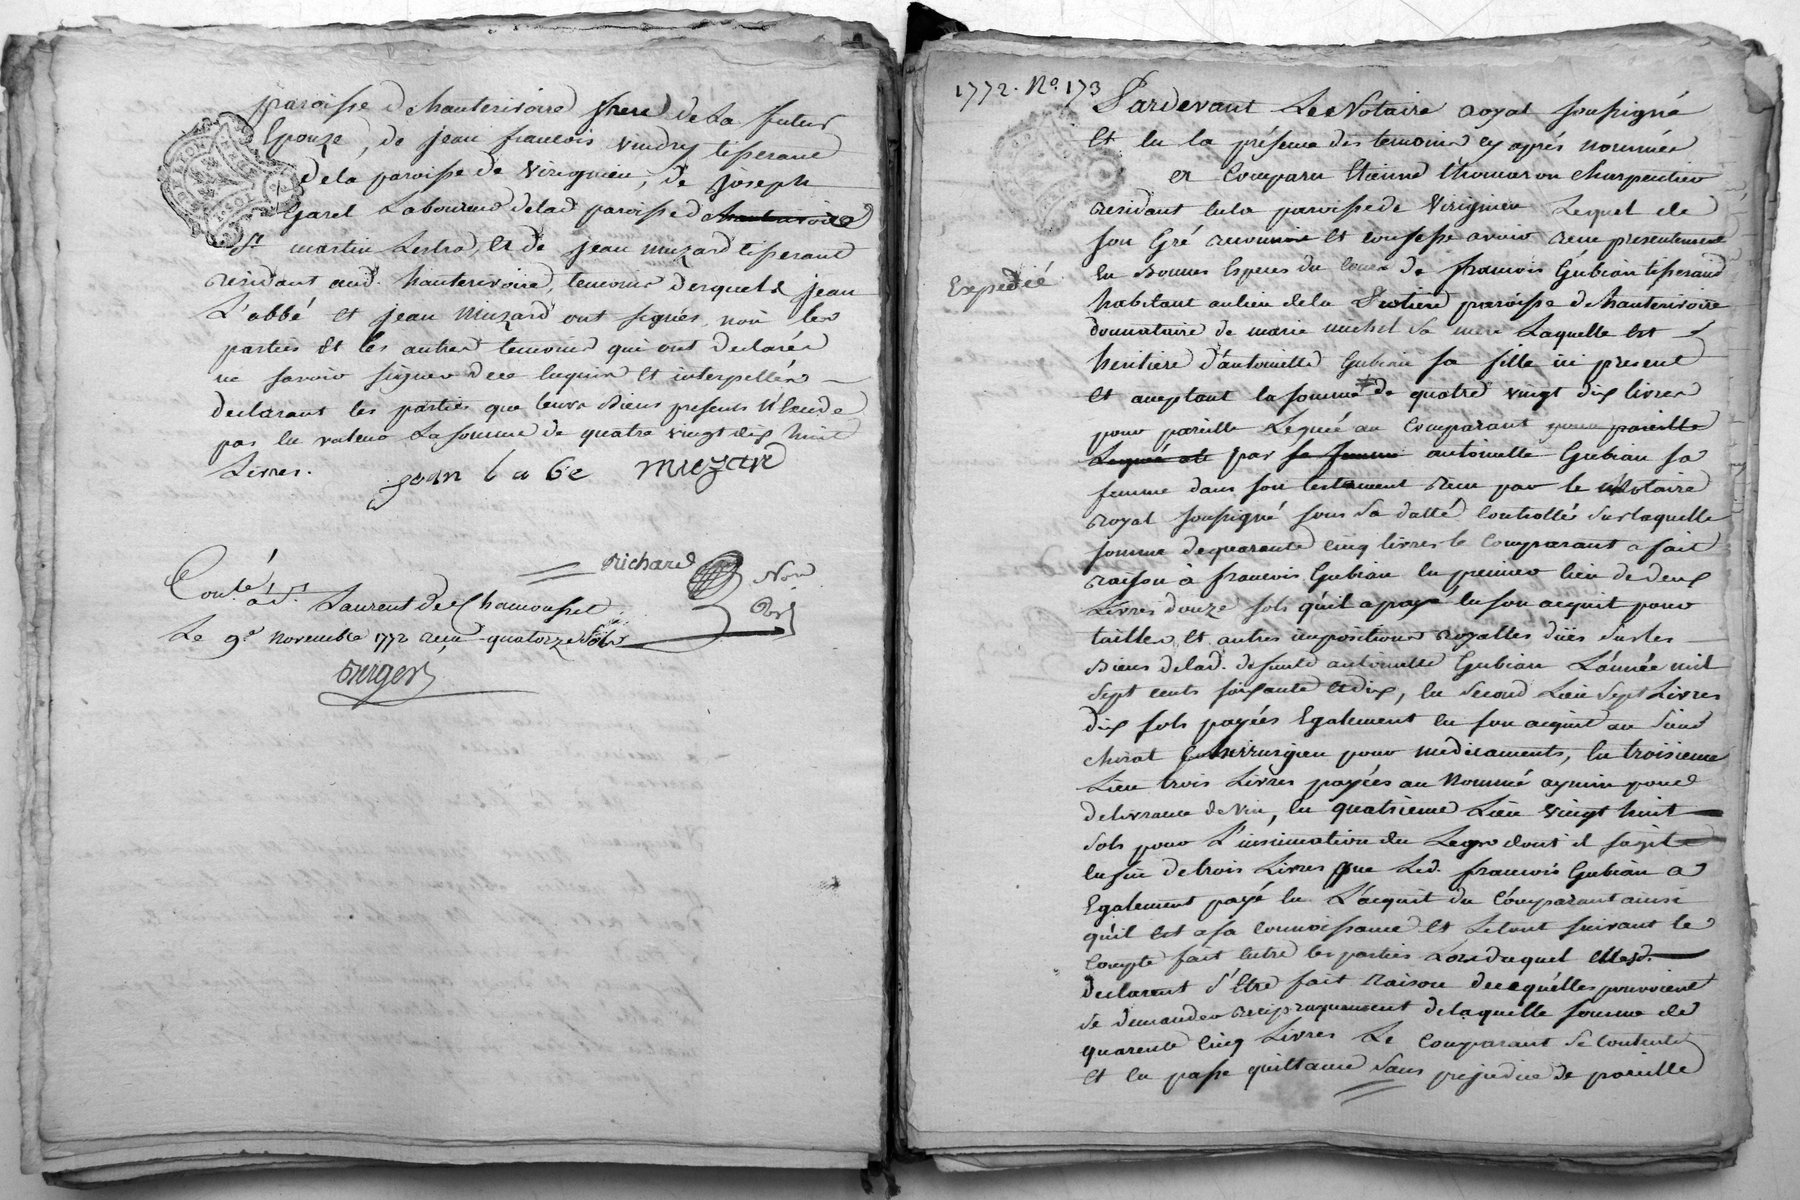 paroisse de hauterivoire frere de La future
Epouze, de jean francois vindry tisserand
de la paroisse de virignieu, de joseph
Garel Laboureur delad. paroisse de hauterivoire
St. martin Lestra, et de jean muzard tisserand
residant aud. hauterivoire, temoins desquels jean
L'abbé et jean Muzard ont signés, non les
parties et les autres temoins qui ont declarés
ne savoir signer de ce enquis et interpellés
declarant les parties que leurs Biens presents N'excede
pas en valeur La somme de quatre vingt dix huit
Livres.
jean la be muzard
Richard Not. Roy.
Conté. à St. Laurent de Chamousset
Le 9e. novembre 1772 reçu quatorze sols
1772. No. 173
Pardevant Le Notaire royal soussigné
Et en la présence des temoins cy après nommés
est Comparu Etienne thomaron charpentier
residant en la paroisse de Virignieu Lequel de
son Gré reconnu et confesse avoir reçu presentement
en Bonnes Especes du cours de francois Gubian tisserand
Expedié
habitant au lieu de la paroisse de hauterivoire
donnataire de marie michel sa mere Laquelle est
heritiere d'antoinette Gubian sa fille ici present
et aceptant la somme de quatre vingt dix livres
pour pareille Leguée au Comparant pour pareille
Leguée par sa femme antoinette Gubian sa
femme dans son testament Reçu par le Notaire
royal soussigné sous sa datte controllé sur laquelle
somme de quarante cinq livres le comparant a fait
raison à francois Gubian en premier lieu de deux
Livres douze sols qu'il a payé en son acquit pour
tailles et autres impositions royalles düés sur les
Biens delad. defunte antoinette Gubian L'année mil
sept cents soixante et dix, en second Lieu sept Livres
dix sols payées Egalement en son acquit au Sieur
chirat chirurgien pour medicaments, en troisieme
Lieu trois Livres payées au Nommé aymin pour
delivrance de vin, en quatrieme Lieu vingt huit
sols pour L'insinuation du Legs dont il s'agit
enfin de trois Livres que Led. francois Gubian a
Egalement payé en L'acquit du Comparant ainsi
qu'il est a sa connoissance et Letout suivant le
Compte fait entre les parties Lors duquel elles
declarent s'être fait Raison de ce qu'elles pouvoient
se demander reciproquement de laquelle somme de
quarente Cinq Livres Le Comparant se contente
et en passe quittance sans prejudice de pareille